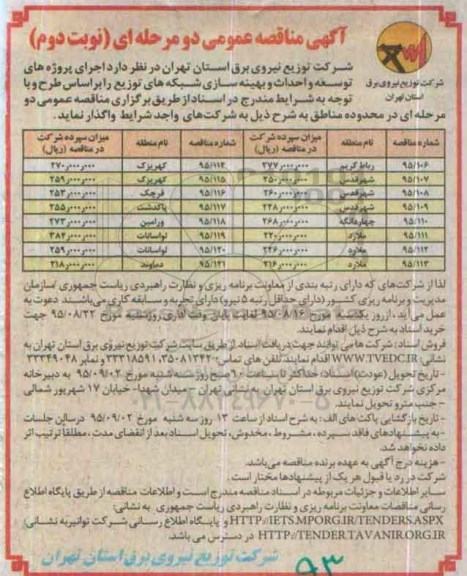 آگهی مناقصه عمومی دو مرحله ای (نوبت دوم)
شرکت توزیع نیروی برق
استان تهران
شرکت توزیع نیروی برق استان تهران در نظر دارد اجرای پروژه های
توسعه و احداث و بهینه سازی شبکه های توزیع را براساس طرح و با
توجه به شرایط مندرج در اسناد از طریق برگزاری مناقصه عمومی دو
مرحله ای در محدوده مناطق به شرح ذیل به شرکت های واجد شرایط واگذار نماید.
شماره مناقصه نام منطقه میزان سپرده شرکت در مناقصه (ریال) شماره مناقصه نام منطقه میزان سپرده شرکت در مناقصه (ریال)
۹۵/۱۰۶ رباط کریم ۲۷۷٫۰۰۰٫۰۰۰ ۹۵/۱۱۴ کهریزک ۲۷۰٫۰۰۰٫۰۰۰
۹۵/۱۰۷ شهرقدس ۹۵/۱۱۵ کهریزک ۲۵۹٫۰۰۰٫۰۰۰
۹۵/۱۰۸ شهرقدس ۲۶۰٫۰۰۰٫۰۰۰ ۹۵/۱۱۶ قرچک ۲۵۳٫۰۰۰٫۰۰۰
۹۵/۱۰۹ شهرقدس ۲۴۸٫۰۰۰٫۰۰۰ ۹۵/۱۱۷ پاکدشت ۲۵۵٫۰۰۰٫۰۰۰
۹۵/۱۱۰ چهاردانگه ۲۶۸٫۰۰۰٫۰۰۰ ۹۵/۱۱۸ ورامین ۲۷۳٫۰۰۰٫۰۰۰
۹۵/۱۱۱ ملارد ۹۵/۱۱۹ لواسانات ۳۸۴٫۰۰۰٫۰۰۰
۹۵/۱۱۲ ملارد ۲۴۶٫۰۰۰٫۰۰۰ ۹۵/۱۲۰ لواسانات ۲۵۹٫۰۰۰٫۰۰۰
۹۵/۱۱۳ ملارد ۲۱۶٫۰۰۰٫۰۰۰ ۹۵/۱۲۱ دماوند ۲۱۸٫۰۰۰٫۰۰۰
لذا از شرکت های که دارای رتبه بندی از معاونت برنامه ریزی و نظارت راهبردی ریاست جمهوری /سازمان
مدیریت و برنامه ریزی کشور (دارای حداقل رتبه ۵ نیرو) دارای تجربه و سابقه کاری می باشند دعوت به
عمل می آید، از روز یکشنبه مورخ ۹۵/۰۸/۱۶ لغایت پایان وقت اداری روز شنبه مورخ ۹۵/۰۸/۲۲ جهت
خرید اسناد به شرح ذیل اقدام نمایند.
فروش اسناد: شرکت ها می توانند جهت دریافت اسناد از طریق سایت شرکت توزیع نیروی برق استان تهران به
نشانی: WWW.TVEDC.IR اقدام نمایند. تلفن های تماس: ۳۵۰۸۱۳۴۲-۳۳۳۱۸۵۹۱ و نمابر ۳۳۳۴۹۰۴۸
- تاریخ تحویل (عودت) اسناد: حداکثر تا ساعت ۱۰ صبح روز سه شنبه مورخ ۹۵/۰۹/۰۲ به دبیرخانه
مرکزی شرکت توزیع نیروی برق استان تهران به نشانی تهران - میدان شهدا- خیابان ۱۷ شهریور شمالی
- جنب مترو تحویل نمایند.
- تاریخ بازگشایی پاکت های الف: به شرح اسناد از ساعت ۱۳ روز سه شنبه مورخ ۹۵/۰۹/۰۲ در سالن جلسات
- به پیشنهادهای فاقد سپرده، مشروط، مخدوش، تحویل اسناد بعد از انقضای مدت، مطلقا ترتیب اثر
داده نخواهد شد.
- هزینه درج آگهی به عهده برنده مناقصه می باشد.
شرکت در رد یا قبول هر یک از پیشنهادها مختار است.
سایر اطلاعات و جزئیات مربوطه در اسناد مناقصه مندرج است و اطلاعات مناقصه از طریق پایگاه اطلاع
رسانی مناقصات معاونت برنامه ریزی و نظارت راهبردی ریاست جمهوری به نشانی:
HTTP://IETS.MPORG.IR/TENDERS.ASPX و پایگاه اطلاع رسانی شرکت توانیر به نشانی:
HTTP://TENDER.TAVANIR.ORG.IR در دسترس می باشد.
شرکت توزیع نیروی برق استان تهران
۹۳